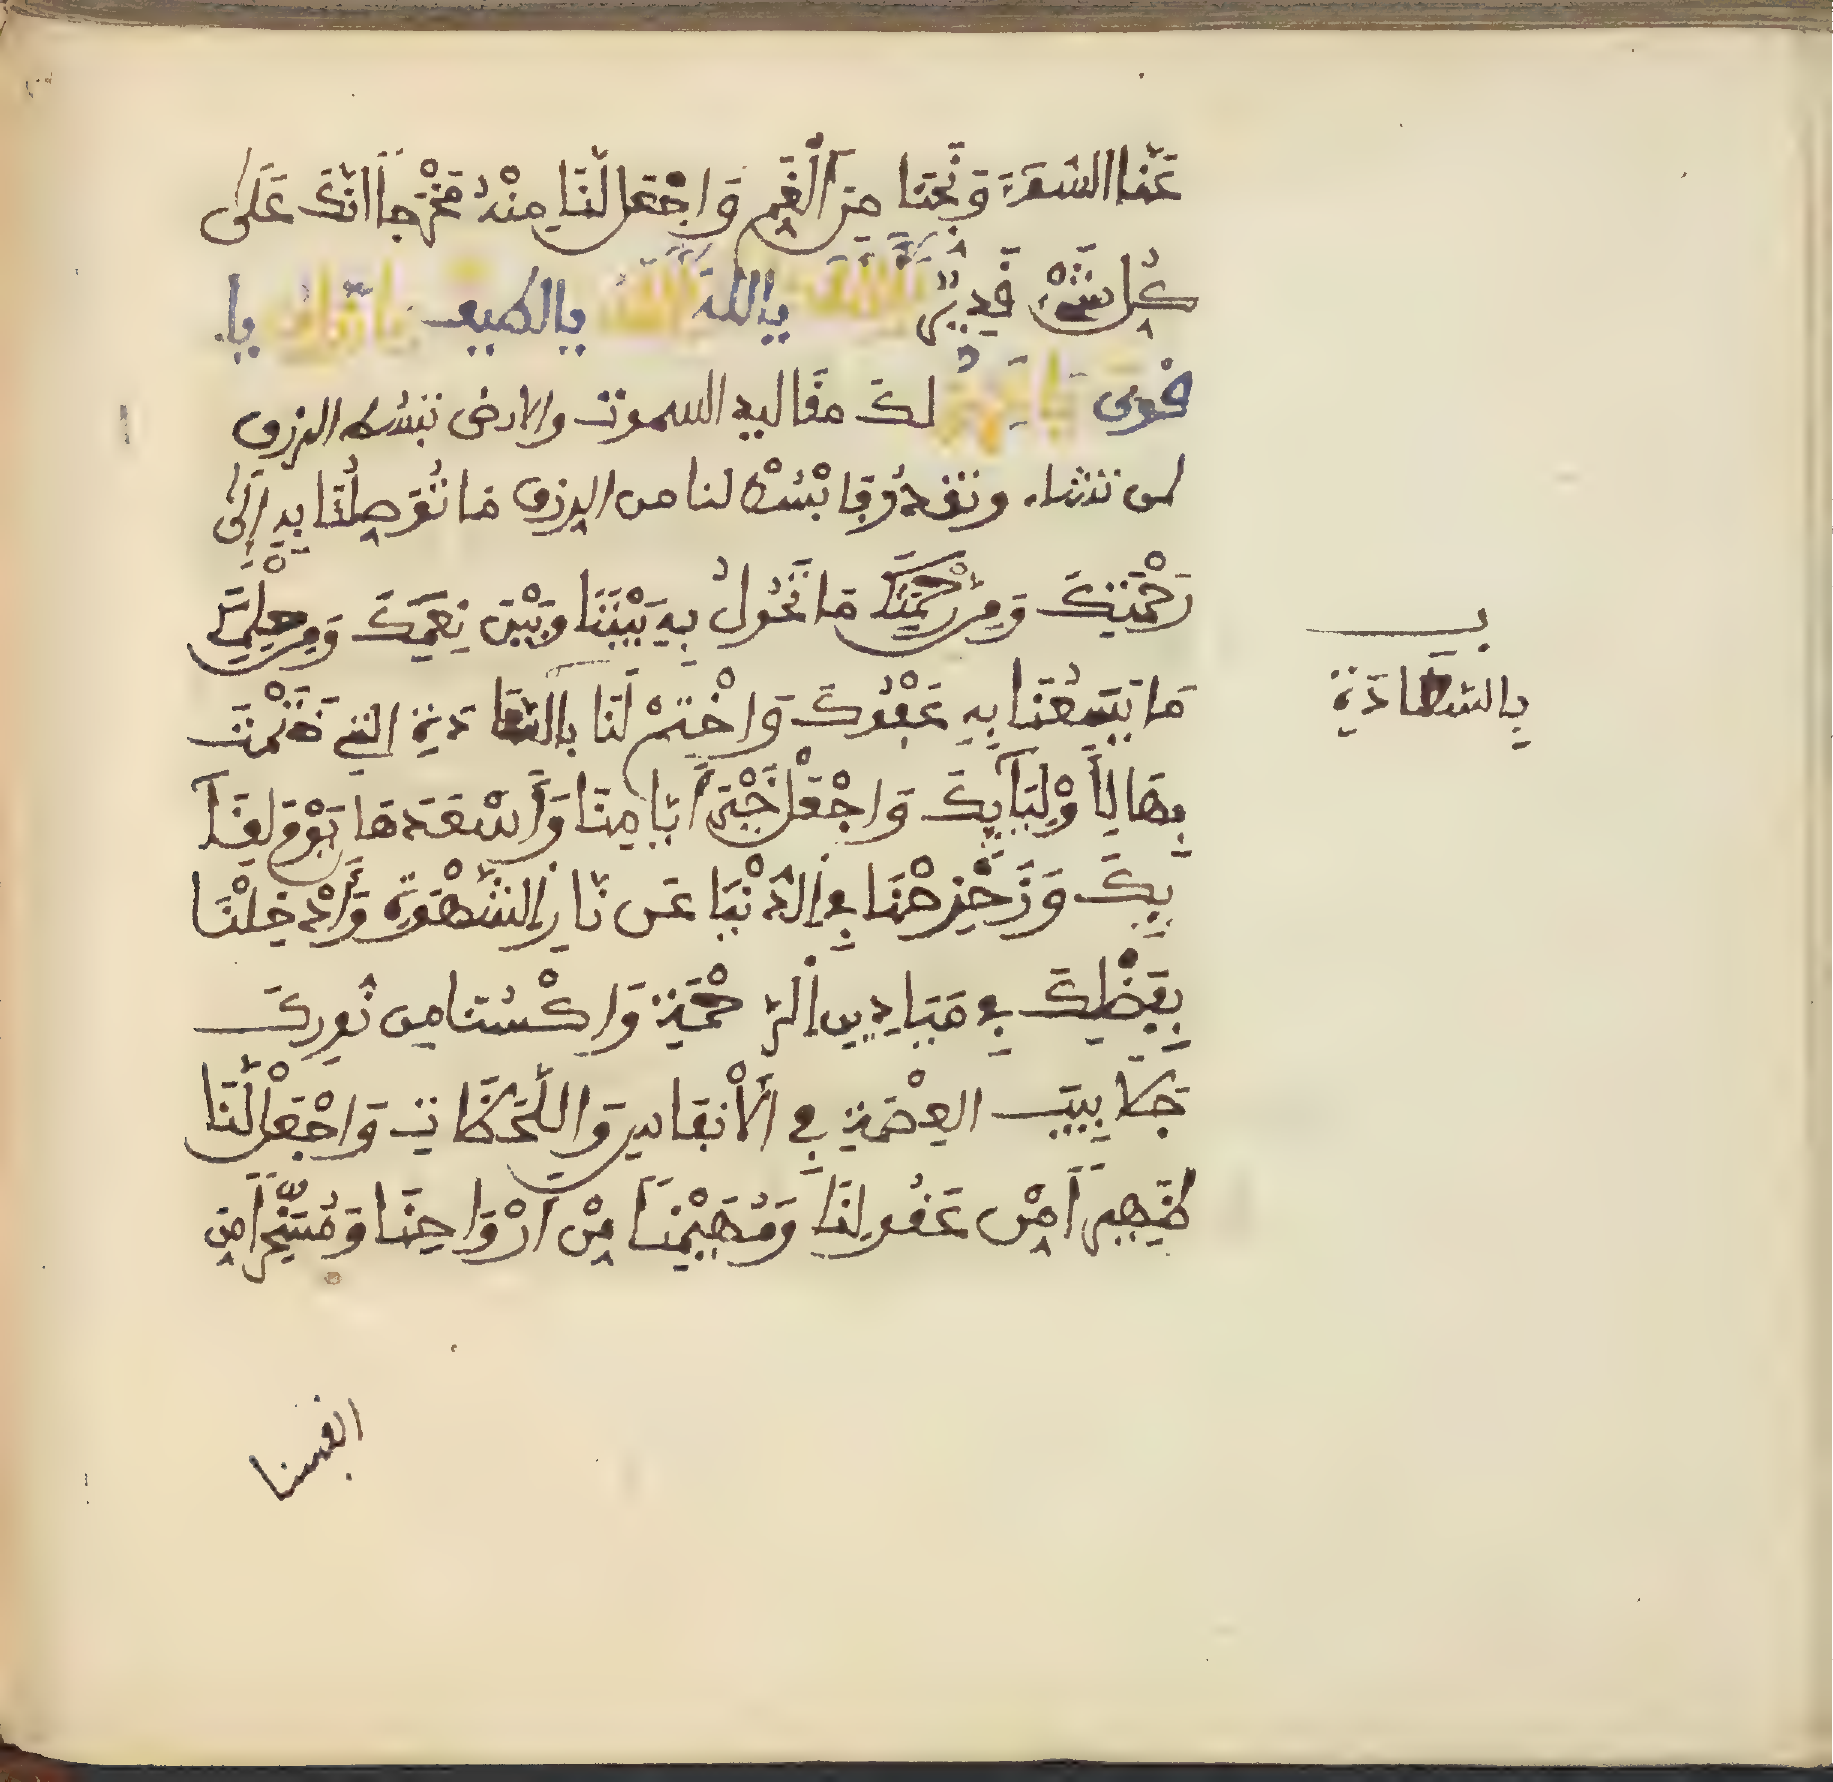 عَنَّا السُّوءَ وَنَجِّنَا مِنَ الْغَمِّ وَاجْعَل لَّنَا مِنْهُ مَخْرَجاً اِنَّكَ عَلَى
كُلِّ شَيْءٍ قَدِيرٌ يا الله يا لطيف يا
قوى لك مقاليد السموت والارض تبسط الرزق
لمن تشاء وتقدر فَابْسُطْ لنا من الرزق مَا تُوَصِلُنَا بِهِ إِلَى
رَحْمَتِكَ وَمِن رَّحْمَتِكَ مَا تَحُولُ بِهِ بَيْنَنَا وَبَيْنَ نِقَمِكَ وَمِنْ حِلْمِكَ
مَا يَسَعُنَا بِهِ عَفْوُكَ وَاخْتِمْ لَنَا بِالسَّعَادَةِ التي خَتَمْتَ
بِهَا لِأَوْلِيَائِكَ وَاجْعَلْ خَيْرَ أَيَّامِنَا وَأَسْعَدَهَا يَوْمَ لِقَا
يِكَ وَزَحْزِحْنَا فِي الدُّنْيَا عَن نَّارِ الشَّهْوَةِ وَأَدْخِلْنَا
بِفَضْلِكَ فِي مَيَادِينِ الرَّحْمَةِ وَاكْسُنَا مِن نُورِكَ
جَلَابِيبَ العِصْمَةِ فِي الْأَنْفَاسِ وَاللَّحَظَاتِ وَاجْعَل لَّنَا
ظَهِيراً مِّنْ عُقُولِنَا وَمُهَيْمِنَا مِنْ اَرْوَاحِنَا وَمُسَخِّراً مِن
انفسنا
بِالسَّعَادَةِ